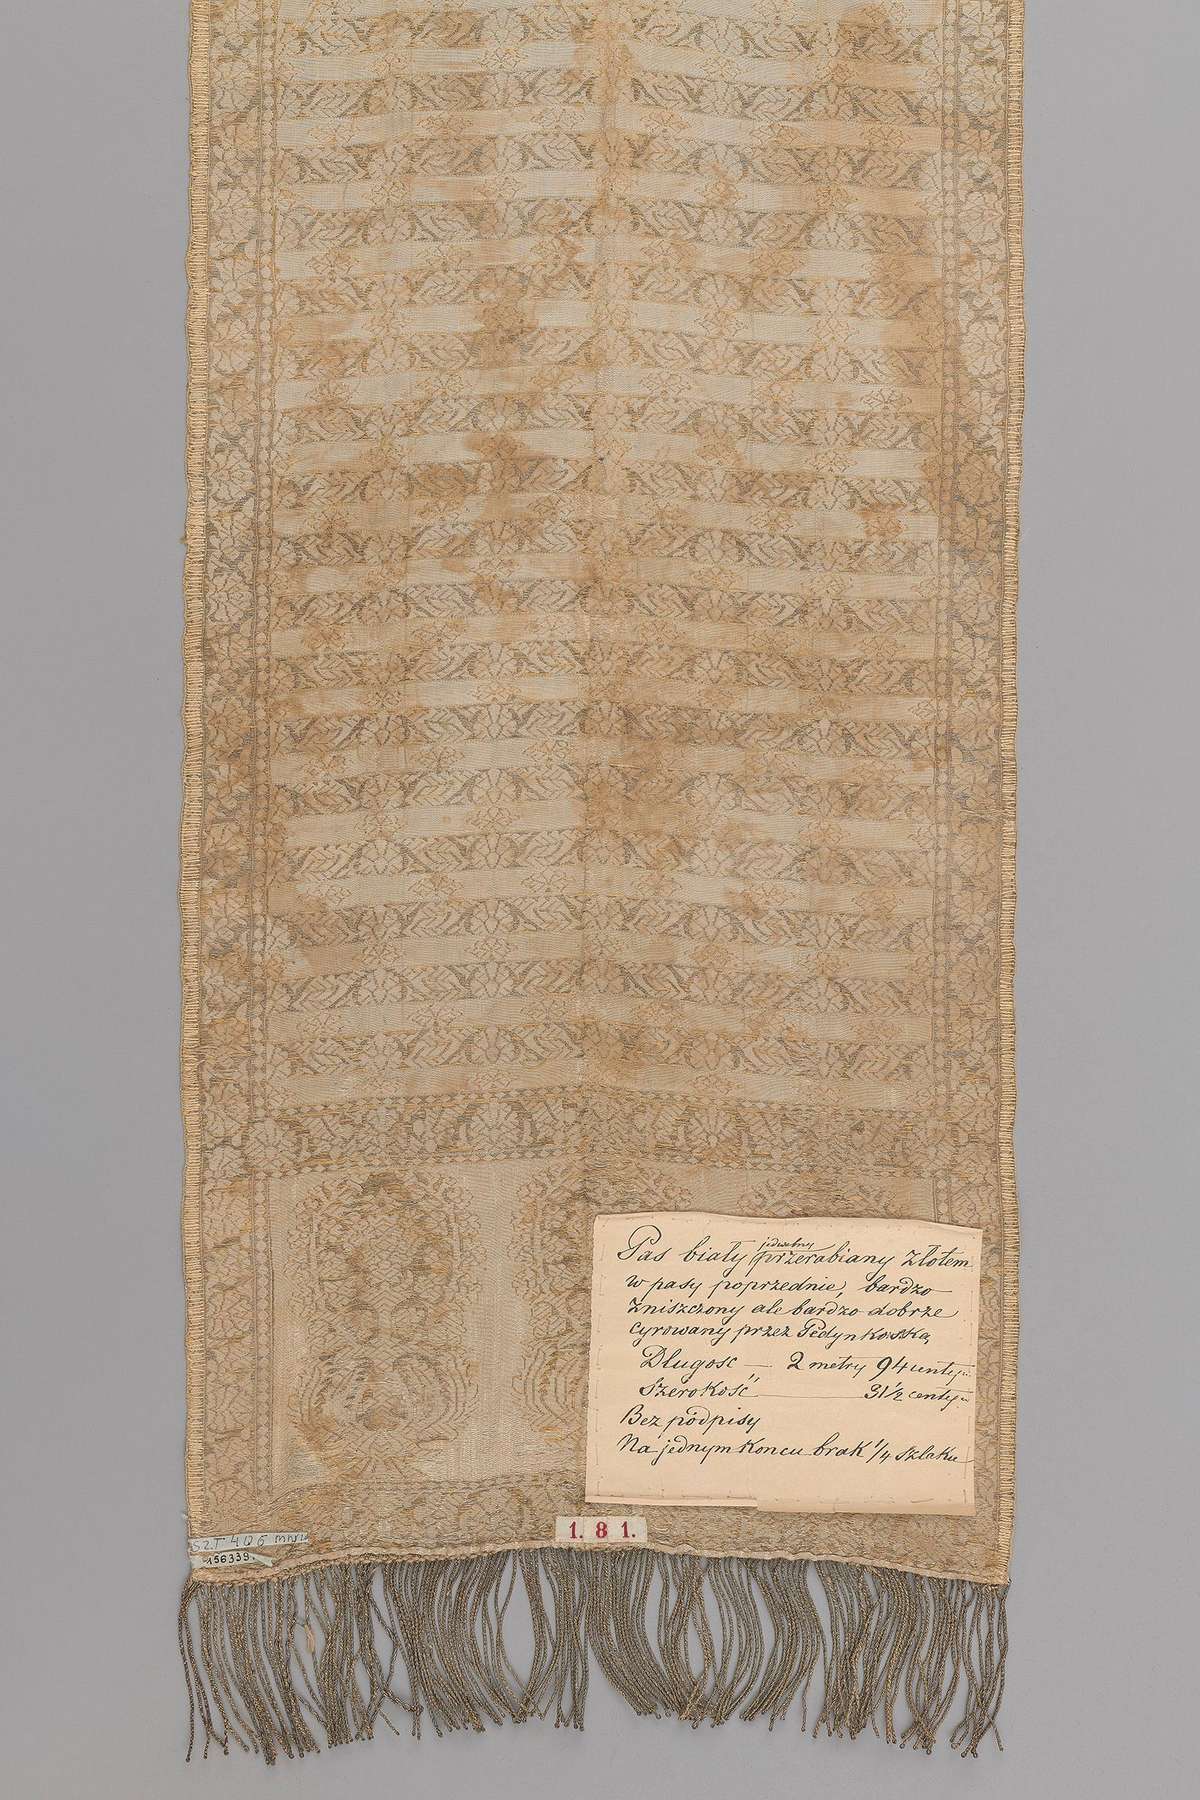 Pas biały jedwabny przerabiany złotem
w pasy poprzednie, bardzo
zniszczony ale bardzo dobrze
cyrowany przez Pedynkowską
Długość — 2 metry 94 centym
Szerokość 31 1/2 centym
Bez pódpisy
Na jednym końcu brak 1/4 szlaku
1. 8 1.
SZT 406
156339.